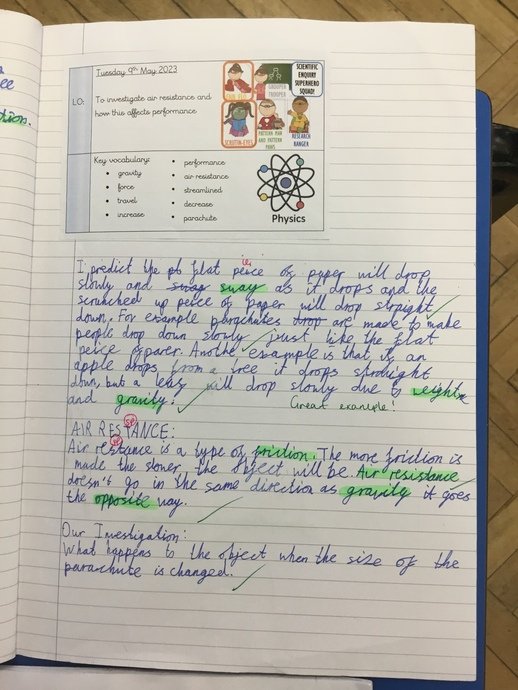 ee
tion.
Tuesday 9th May 2023
LO:
To investigate air resistance and
how this affects performance
GROUPER
TROOPER
SCIENTIFIC
ENQUIRY
SUPERHERO
SQUAD!
SCRUTIN-EYES
PATTERN PAM
AND PATTERN
PAWS
RESEARCH
RANGER
Key vocabulary:
gravity
force
travel
increase
performance
air resistance
streamlined
decrease
parachute
Physics
ie
I predict the pb flat peice of paper will drop
slowly and sway as it drops and the
scrunched up peice of paper will drop straight
down. For example parachutes drop are made to make
people drop down slowly just like the flat
peice of paper. Another example is that if an
apple drops from a tree it drops straight
down, but a leaf will drop slowly due to weight
and gravity.
Great example!
sp
AIR RESTANCE:
sp
Air restance is a type of friction. The more friction is
made the slower the object will be. Air resistance
doesn't go in the same direction as gravity it goes
the opposite way.
Our Investigation:
What happens to the object when the size of the
parachute is changed.